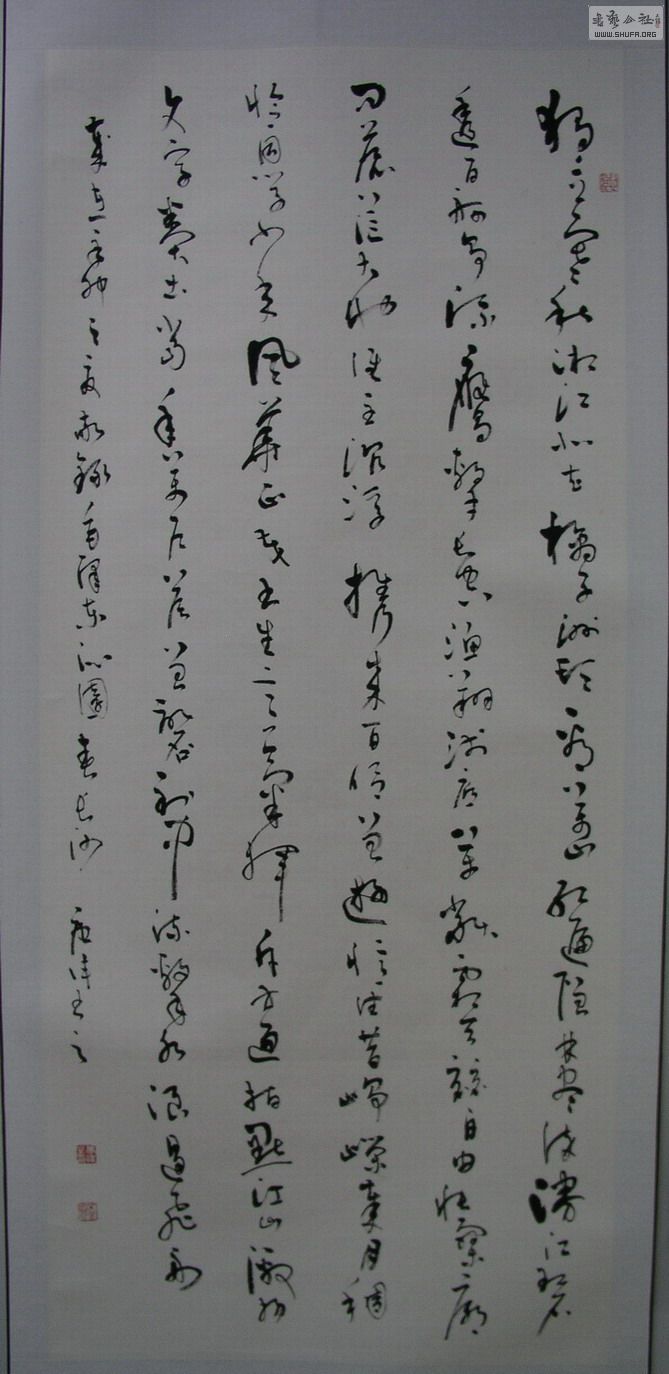 書藝公社
WWW.SHUFA.ORG
獨立寒秋湘江北去橘子洲頭看萬山紅遍層林盡染漫江碧
透百舸爭流鷹擊長空魚翔淺底萬類霜天競自由悵寥廓
問蒼茫大地誰主沉浮攜來百侶曾遊憶往昔崢嶸歲月稠
恰同學少年風華正茂書生意氣揮斥方遒指點江山激揚
文字糞土當年萬戶侯曾記否到中流擊水浪遏飛舟
歲在之夏敬錄毛澤東沁園春長沙書之